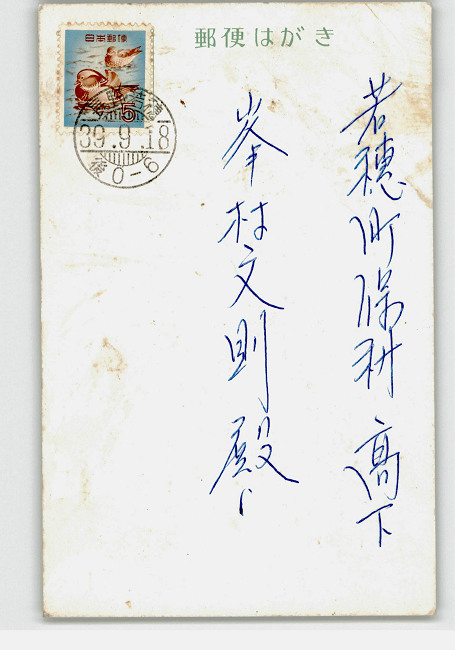 郵便はがき
日本郵便
5
39.9.18
後0-6
若穂町保科 高下
峯村文則殿